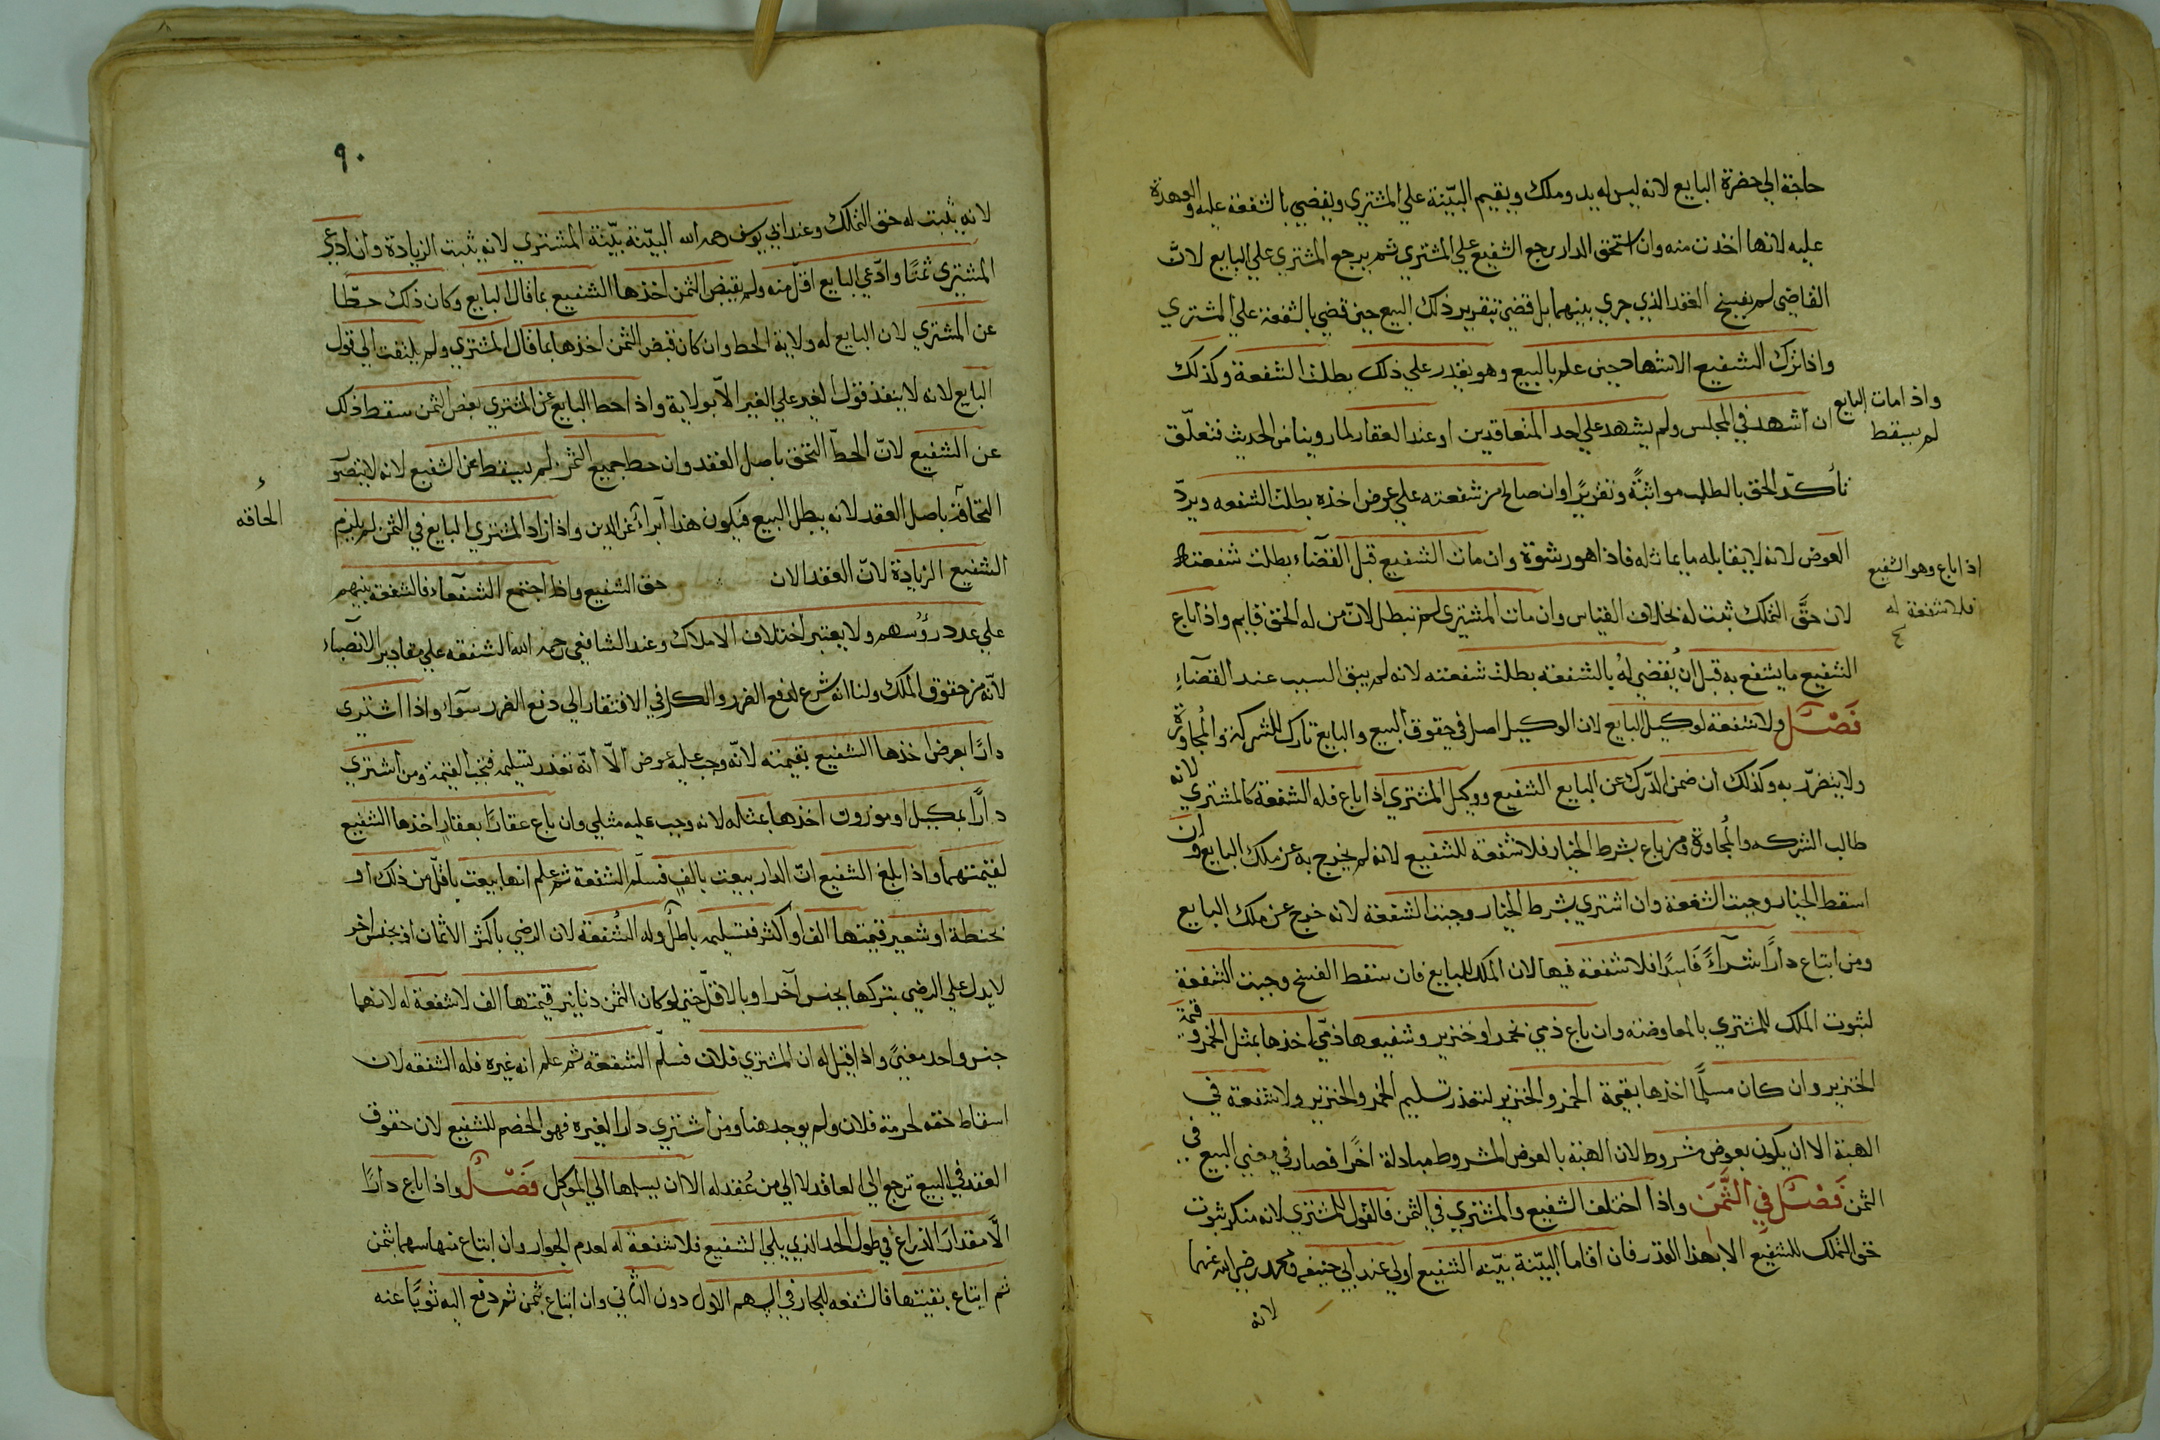 حاجة الي حضرة البايع لانه ليس له يد وملك ويقيم البيّنة علي المشتري ويقضي بالشفعة عليه والعهدة
عليه لانها اخذت منه وان استحق الدار رجع الشفيع علي المشتري ثم يرجع المشتري علي البايع لانّ
القاضي لم يفسخ العقد الذي جري بينهما بل قضي بتقرير ذلك البيع حين قضي بالشفعة علي المشتري
واذا ترك الشفيع الاشهاد حين علم بالبيع وهو يقدر علي ذلك بطلت الشفعة وكذلك
واذا مات البايع
لم يسقط
ان اشهد في المجلس ولم يشهد علي احد المتعاقدين او عند العقار لما روينا من الحديث فتعلّق
تأكّد الحق بالطلب مواثبةً وتقريرًا وان صالح من شفعته علي عوض اخذه بطلت الشفعه ويردّ
العوض لانه لا يقابله ما يماثله فاذا هو رشوة وان مات الشفيع قبل القضاء بطلت شفعته
اذا باع وهو الشفيع
فلا شفعة له
لان حقَّ التملك ثبت له بخلاف القياس وان مات المشتري لم تبطل لانّ من له الحق قايم واذا باع
الشفيع ما يشفع به قبل ان يُقضي لهُ بالشفعة بطلت شفعته لانه لم يبق السبب عند القضاءِ
فَصْل ولا شفعة لوكيل البايع لان الوكيل اصل في حقوق البيع والبايع تارك للشركة والمجاورة
ولا يتضرّر به وكذلك ان ضمن الدّرك عن البايع الشفيع ووكيل المشتري اذا باع فله الشفعة كالمشتري لانه
طالب الشركه والمجاورة ومن باع بشرط الخيار فلا شفعة للشفيع لانه لم يخرج به عن ملك البايع وان
اسقط الخيار وجبت الشفعة وان اشتري بشرط الخيار وجبت الشفعة لانه خرج عن ملك البايع
ومن ابتاع دارًا شراءً فاسدًا فلا شفعة فيها لان الملك للبايع فان سقط الفسخ وجبت الشفعة
لثبوت الملك للمشتري بالمعاوضه وان باع ذمي بخمر او خنزير وشفيعها ذمّي اخذها بمثل الخمر وقيمة
الخنزير وان كان مسلمًا اخذها بقيمة الخمر والخنزير لتعذر تسليم الخمر والخنزير ولا شفعة في
الهبة الا ان يكون بعوض مشروط لان الهبة بالعوض المشروط مبادلة اخرًا فصار في معني البيع في
الثمن فَصْل في الثَّمَن واذا اختلف الشفيع والمشتري في الثمن فالقول للمشتري لانه منكر ثبوت
حق التملك للشفيع الا بهذا القدر فان اقاما البيّنة بيّنه الشفيع اولي عند ابي حنيفه ومحمد رضي الله عنهما
لانه
٩٠
لانه ثبت له حق التملك وعند ابي يوسف رحمه الله البيّنة بيّنة المشتري لانه ثبت الزيادة وان ادعي
المشتري ثمنًا وادّعي البايع اقلّ منه ولم يقبض الثمن اخذها الشفيع بما قال البايع وكان ذلك حطّا
عن المشتري لان البايع له ولاية الحط وان كان قبض الثمن اخذها بما قال المشتري ولم يلتفت الي قول
البايع لانه لا ينفذ قول الغير علي الغير الّا بولاية واذا حط البايع عن المشتري بعض الثمن سقط ذلك
عن الشفيع لانّ الحطّ التحق باصل العقد وان حط جميع الثمن لم يسقط عن الشفيع لانه لا يتصوّر
التحاقه باصل العقد لانه يبطل البيع فيكون هذا ابراءً عن الدين واذا زاد المشتري البايع في الثمن لم يلزم
الحاقه
الشفيع الزيادة لانّ العقد الان حق الشفيع واذا اجتمع الشفعاء فالشفعة بينهم
علي عدد رؤسهم ولا يعتبر اختلاف الاملاك وعند الشافعي رحمه الله الشفعه علي مقادير الانصباء
لانّه من حقوق الملك ولنا انه شرع لدفع الضرر والكل في الافتقار الي دفع الضرر سوآء واذا اشتري
دارًا بعرض اخذها الشفيع بقيمته لانّه وجب عليه عرض الّا انّه تعذر تسليمه فتجب القيمة ومن اشتري
دارًا بمكيل او موزون اخذها بمثله لانه وجب عليه مثلي وان باع عقارًا بعقار اخذها الشفيع
لقيمتهما واذا بلغ الشفيع انّ الدار بيعت بالف فسلّم الشفعة ثم علم انها بيعت باقلّ من ذلك او
بحنطة او شعير قيمتها الف او اكثر فتسليمه باطل وله الشُفعة لان الرضي باكثر الاثمان او بجنس اخر
لا يدل علي الرضي بتركها بجنس آخر او بالاقلّ حتي لو كان الثمن دنانير قيمتها الف لا شفعة له لانهما
جنس واحد معنيً واذا قيل له ان المشتري فلان فسلّم الشفعة ثم علم انه غيره فله الشفعه لان
اسقاط حقه لحرمة فلان ولم يوجد هنا ومن اشتري دارًا لغيره فهو الخصم للشفيع لان حقوق
العقد في البيع ترجع الي العاقد لا الي من عُقد له الا ان يسلمها الي الموكل فَصْل واذا باع دارًا
الّا مقدار الذراع في طول الحد الذي يلي الشفيع فلا شفعة له لعدم الجوار وان ابتاع منها سهما بثمن
ثم ابتاع بقيتها فالشفعه للجار في السهم الاول دون الثاني وان ابتاع بثمن ثم دفع اليه ثوبًا عنه